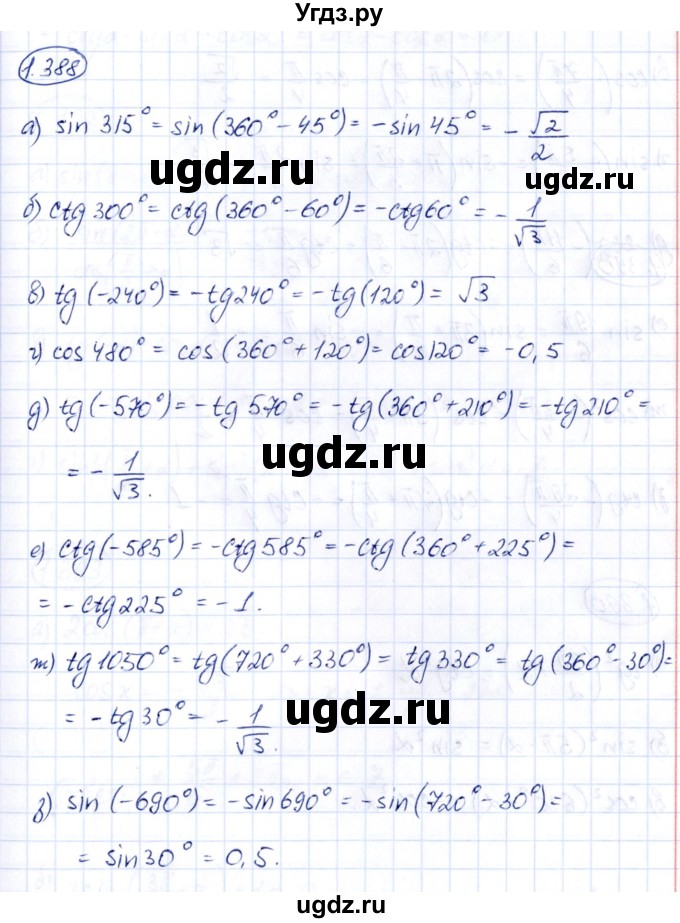 Угдз.ру
1.388
а) sin 315° = sin(360° - 45°) = -sin 45° = - √2/2
ugdz.ru
б) ctg 300° = ctg(360° - 60°) = -ctg 60° = - 1/√3
в) tg(-240°) = -tg 240° = -tg(120°) = √3
г) cos 480° = cos(360° + 120°) = cos 120° = -0,5
д) tg(-570°) = -tg 570° = -tg(360° + 210°) = -tg 210° =
= - 1/√3.
ugdz.ru
е) ctg(-585°) = -ctg 585° = -ctg(360° + 225°) =
= -ctg 225° = -1.
ж) tg 1050° = tg(720° + 330°) = tg 330° = tg(360° - 30°) =
= -tg 30° = - 1/√3.
ugdz.ru
з) sin(-690°) = -sin 690° = -sin(720° - 30°) =
= sin 30° = 0,5.
ugdz.ru